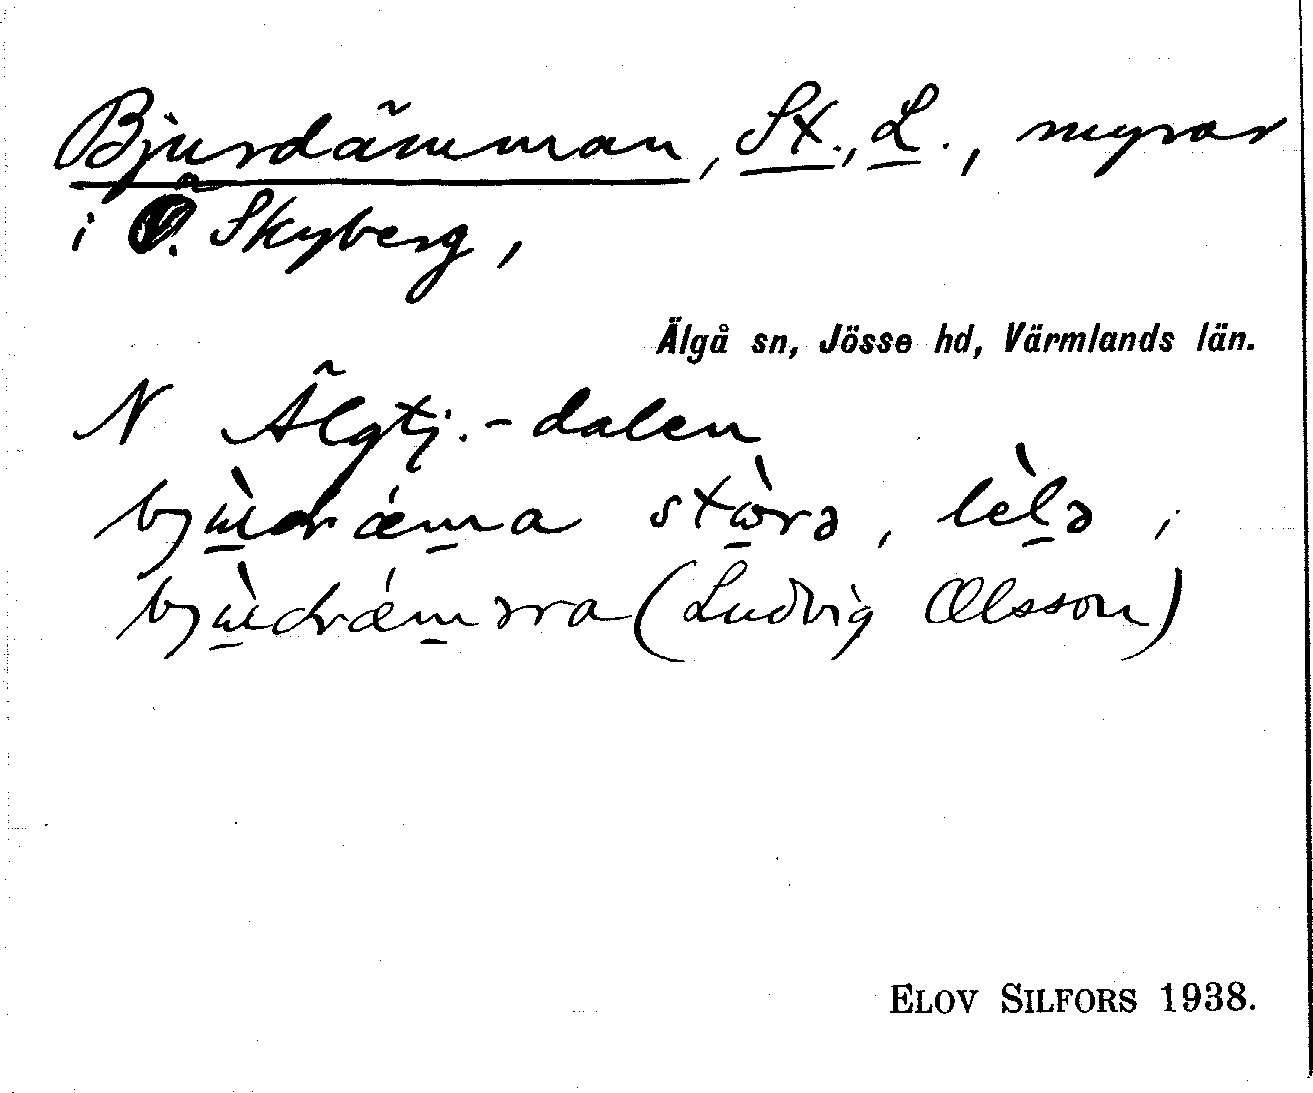 Bjurdämman, St., L., myrar
i Ö. Skyberg,
Älgå sn, Jösse hd, Värmlands län.
N Älgtj.-dalen
bjùdrǽma stòrə, lèlə;
bjùdrǽmərra (Ludvig Olsson)
ELOV SILFORS 1938.